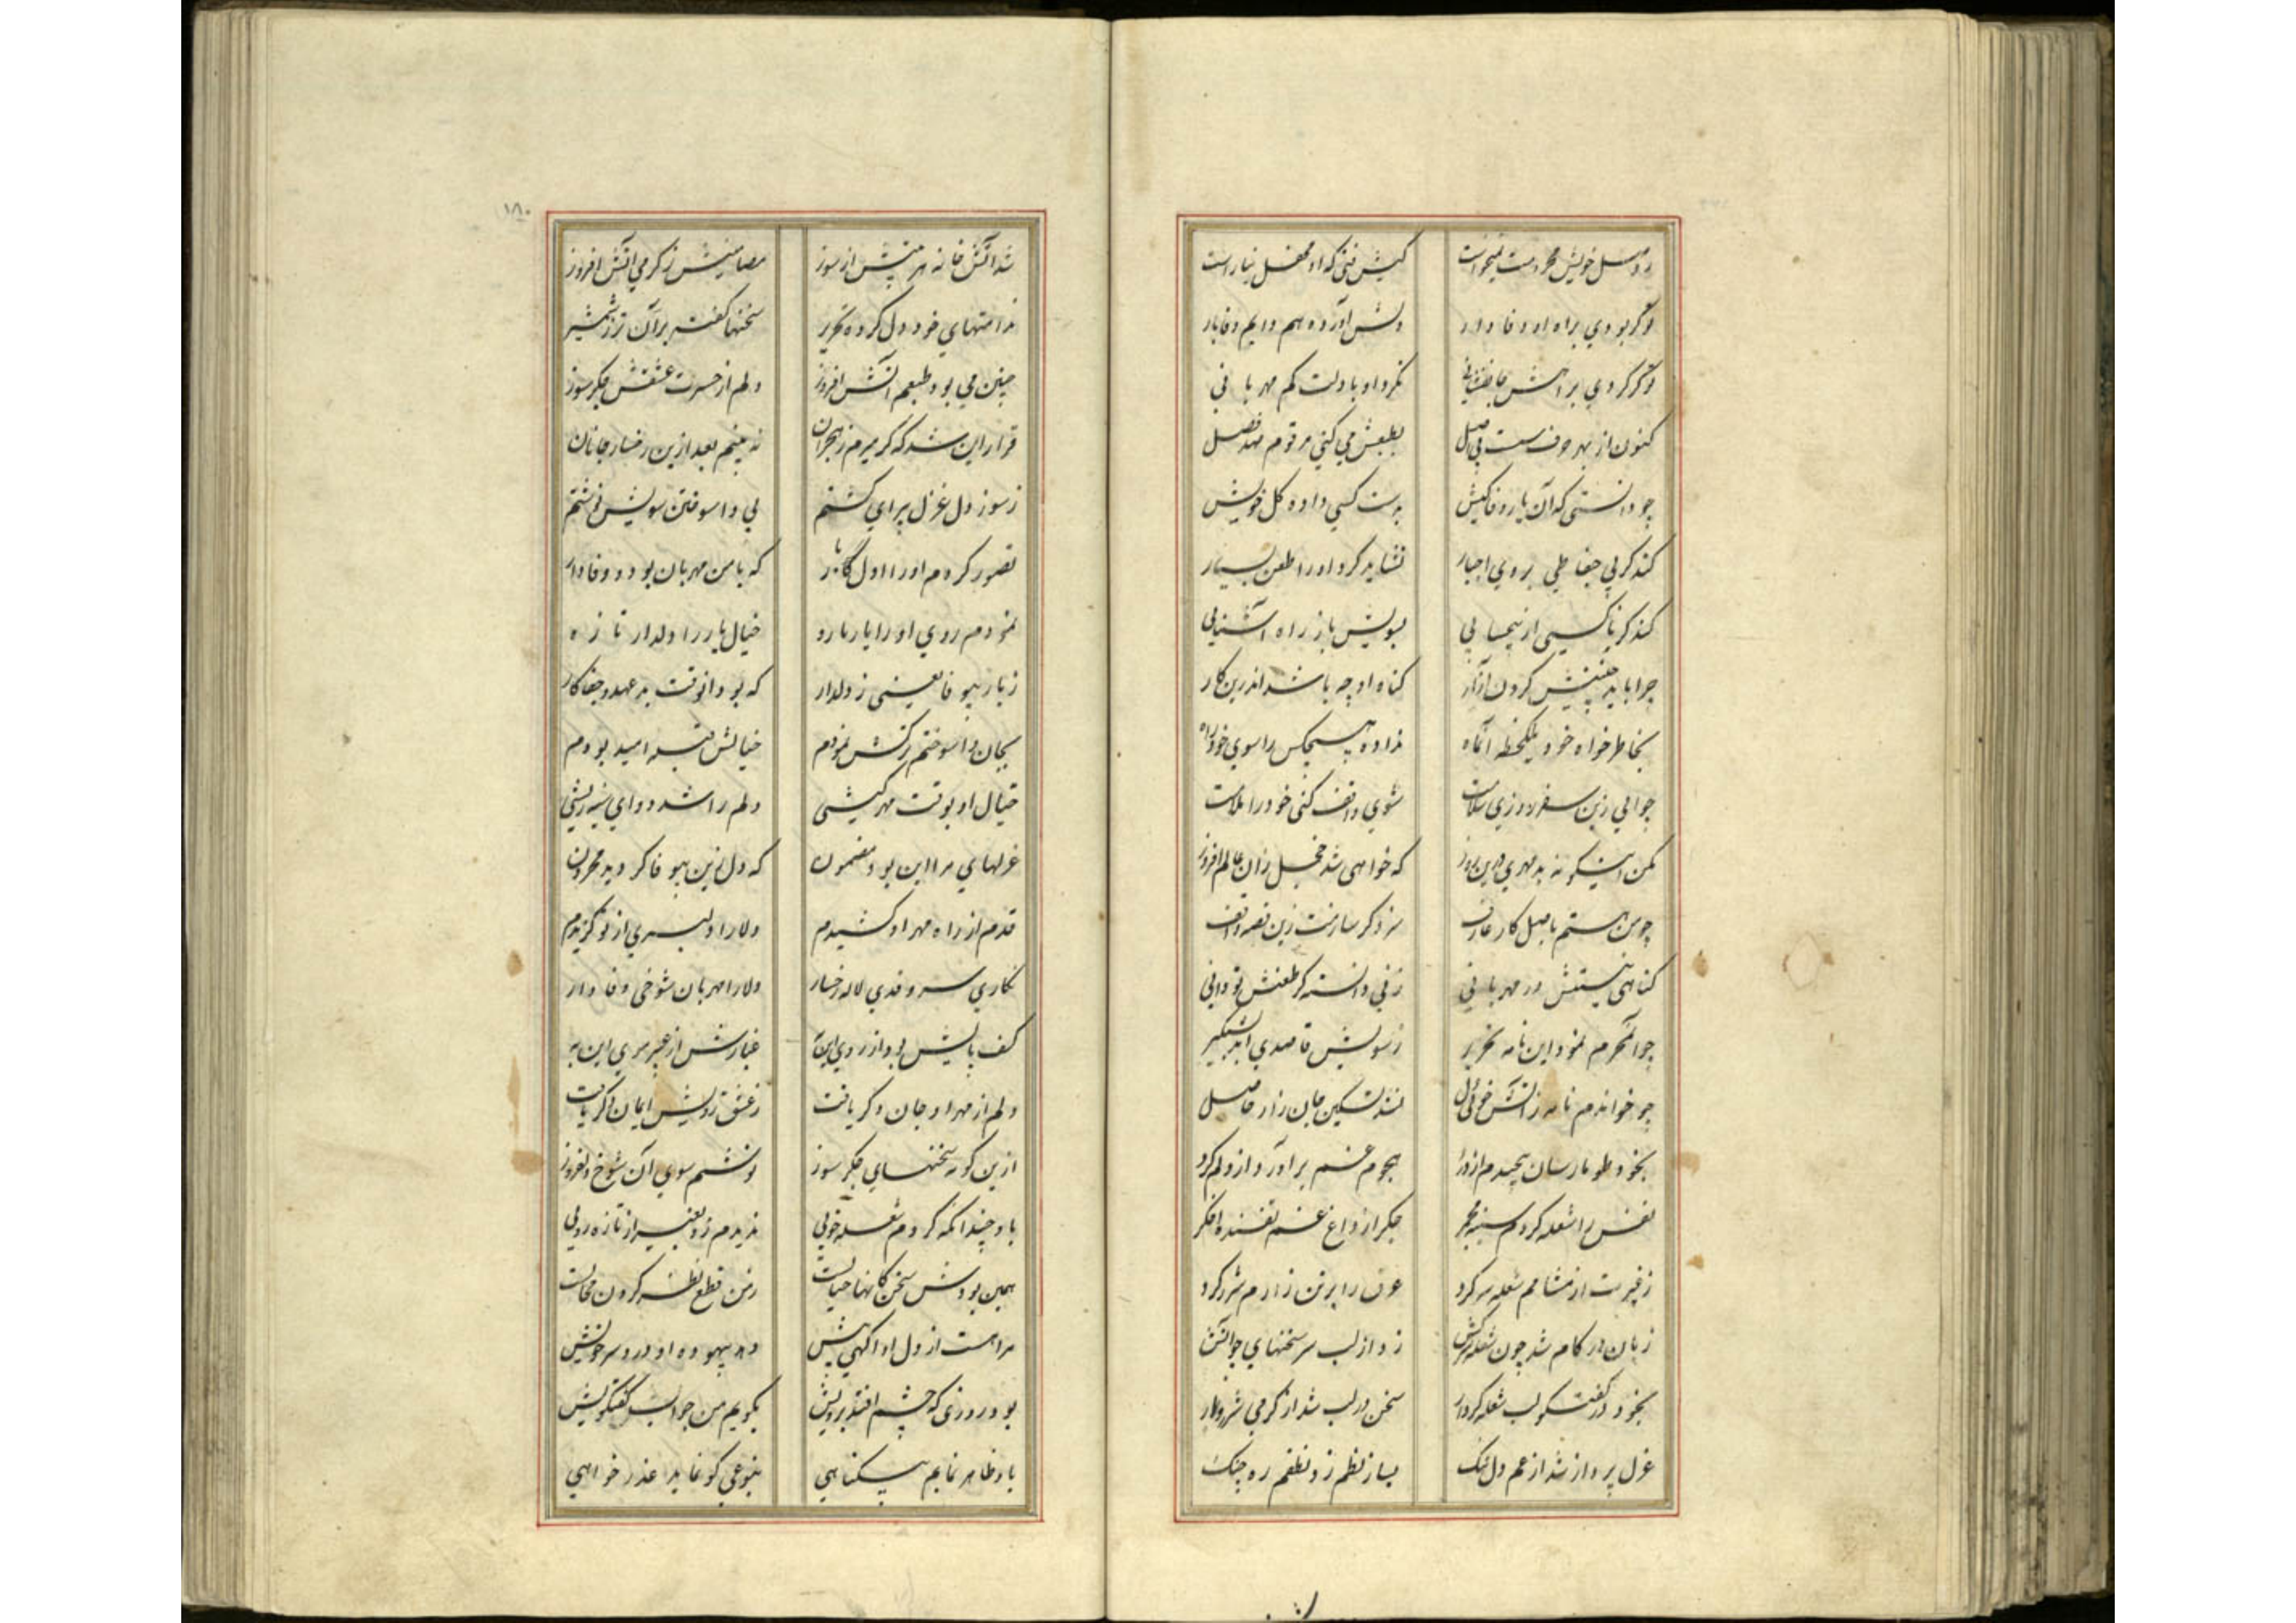 ز وصل خویش محرومت نمیخواست کیش فنی که او محفل نیاراست
توگر بودی براه او وفادار دلش آورده هم دایم وفا بار
توگر کردی براهش جانفشانی نکرد او با دلت کم مهربانی
کنون از بهر حرف سست بی اصل بطبعش می کنی مرقوم صد فصل
چو دانستی که آن یار وفاکیش بدست کسی داده کل خویش
کند کر بی جفا طی روی اجبار نشاید کرد او را طعن بسیار
کند کر ناکسی از بیحیایی بسویش باز راه آشنایی
چرا باید چنینش کردن آزار کناه او چه باشد اندرین کار
بخاطر خواه خود یکلحظه آنماه نداده هیچکس را سوی خود راه
چو آیی زین سفر روزی سلامت شوی واقف کنی خود را ملامت
مکن اینکونه بدمهری درین روز که خواهی شد خجل زان عالم افروز
چو من هستم باصل کار عارف سزد کر سازمت زین قصه واقف
کناهی نیستش در مهربانی زنی دانسته کر طعنش تو دانی
چو آنمحرم نمود این نامه تحریر ز سویش قاصدی آمد بشبکیر
چو خواندم نامه ز آتش خویی دل نشد تسکین جان زار حاصل
بخود طومارسان پیچیدم از درد هجوم غم برآورد از دلم کرد
نفس را شعله کردم سینه مجمر جکر از داغ غم تفسنده اخکر
ز غیرت از مشامم شعله سر کرد عرق را بر تن زارم شرر کرد
زبان در کام شد چون شعله سرکش زد از لب سر سخنهای چو آتش
بخود در گفتگو لب شعله کردار سخن در لب شد از کرمی شرر بار
غزل پرداز شد از غم دل تنک بساز نظم زد نطقم ره چنک
شد آتش خانه هر بیتش از سوز مضامینش ز کرمی آتش افروز
ندامتهای خود دل کرده تحریر سخنها کفته بران تر ز شمشیر
چنین می بود طبعم آتش افروز دلم از حسرت عشقش جکرسوز
قرار این شد که کر میرم ز هجران نه بینم بعد ازین رخسار جانان
ز سوز دل غزل پیرای کشتم پی واسوختن سویش نوشتم
تصور کردم او را اول کار که با من مهربان بود و وفادار
نمودم روی او را یار تازه خیال یار را دلدار تازه
ز یار بیوفا یعنی ز دلدار که بود آنوقت بد عهد و جفاکار
بجان واسوختم ترکش نمودم خیالش قبله امید بودم
خیال او بوقت مهرکیشی دلم را شد دوای سینه ریشی
غزلهای مرا این بود مضمون که دل زین بیوفا کردید محزون
قدم از راه مهر او کشیدم دلارا دلبری از نو کزیدم
نکاری سروقدی لاله رخسار دلارا مهربان شوخی وفادار
کف پایش به از روی این غبارش از عبیر موی این به
دلم از مهر او جان دکر یافت ز عشق رویش ایمان دکر یافت
ازین کونه سخنهای جکرسوز نوشتم سوی آن شوخ دلفروز
باو چندانکه کردم شعله خویی ندیدم زو بغیر از تازه رویی
همین بودش سخن کاینها خیالست ز من قطع نظر کردن محالست
مرا هست از دل او آکهی بیش دهد بیهوده او درد سر خویش
بود روزی که چشم افتد برویش بکویم من جواب گفتگویش
باو ظاهر نمایم بیکناهی بنوعی کو نماید عذر خواهی
۱۸۰